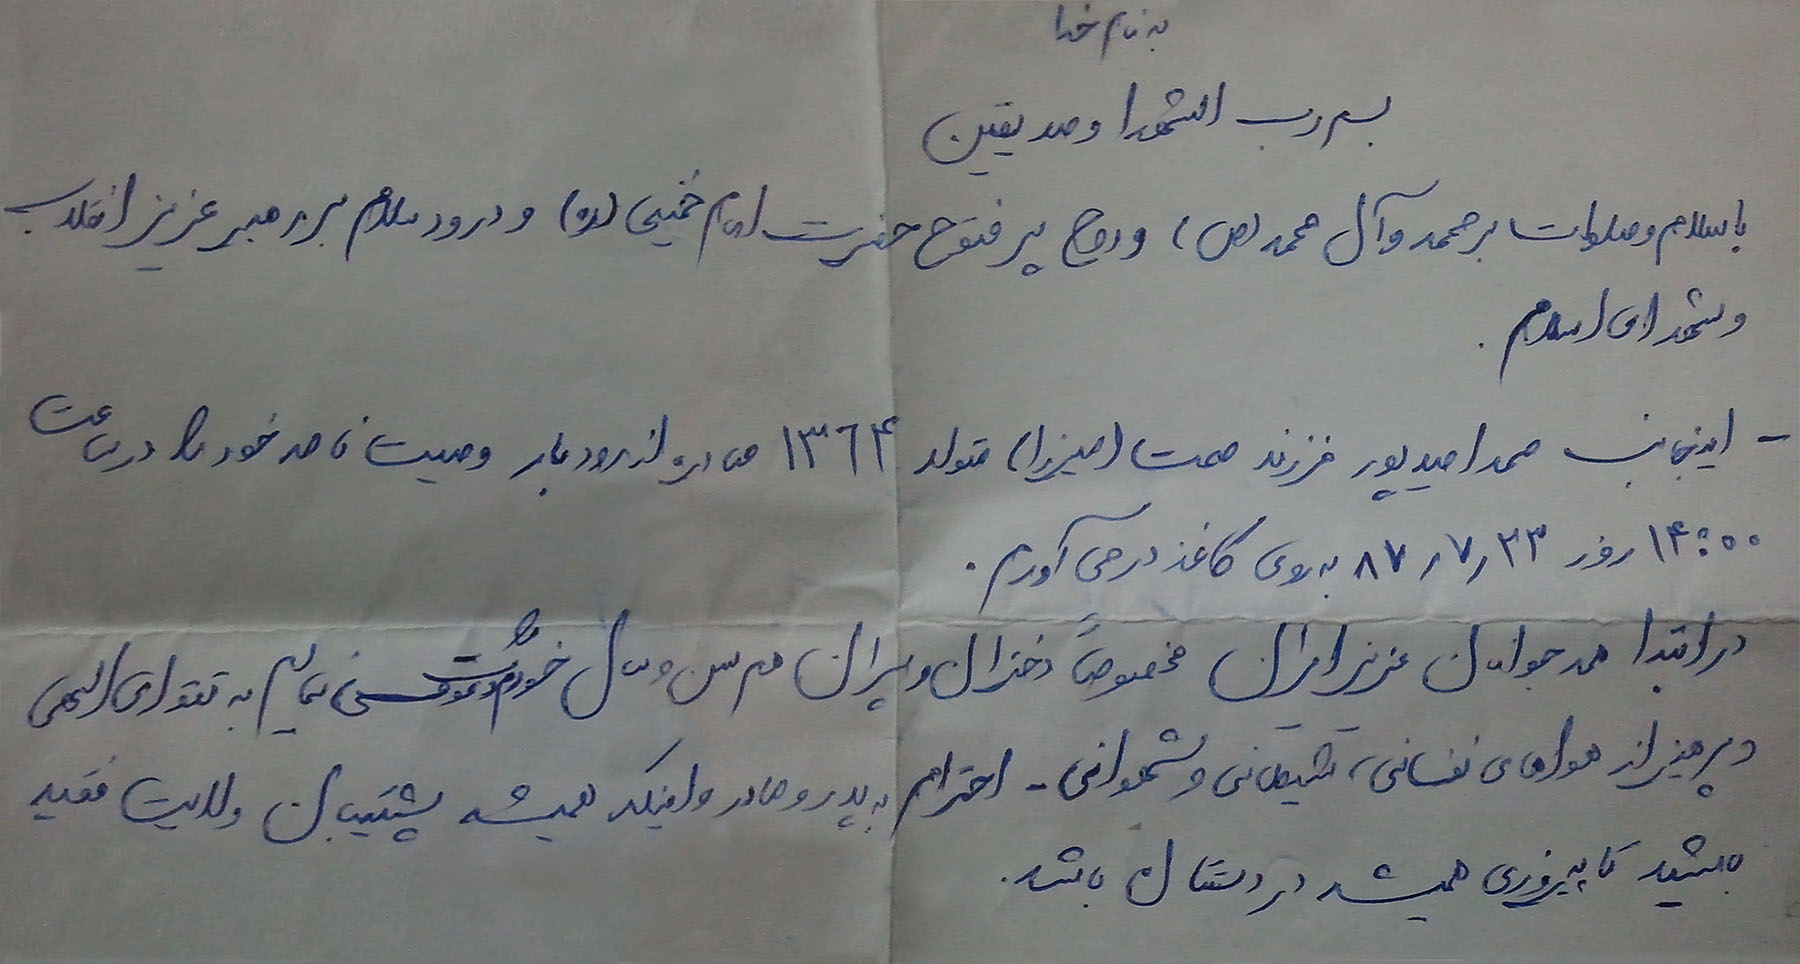 به نام خدا
بسم رب الشهدا وصدیقین
با سلام و صلوات بر محمد و آل محمد (ص) و روح پر فتوح حضرت امام خمینی (ره) و درود سلام بر رهبر عزیز انقلاب
و شهدای اسلام .
- اینجانب صمد امیدپور فرزند همت (میرزا) متولد ۱۳۶۴ صادره از رودبار وصیت نامه خود را در ساعت
۱۴:۰۰ روز ۸۷٫۷٫۲۳ به روی کاغذ در می آورم .
در ابتدا همه جوانان عزیز ایران مخصوصاً دختران و پسران هم سن و سال خودم را دعوت می نمایم به تقوای الهی
و پرهیز از هواهای نفسانی، شیطانی و شهوانی - احترام به پدر و مادر و اینکه همیشه پشتیبان ولایت فقیه
باشید تا پیروزی همیشه در دستتان باشد.